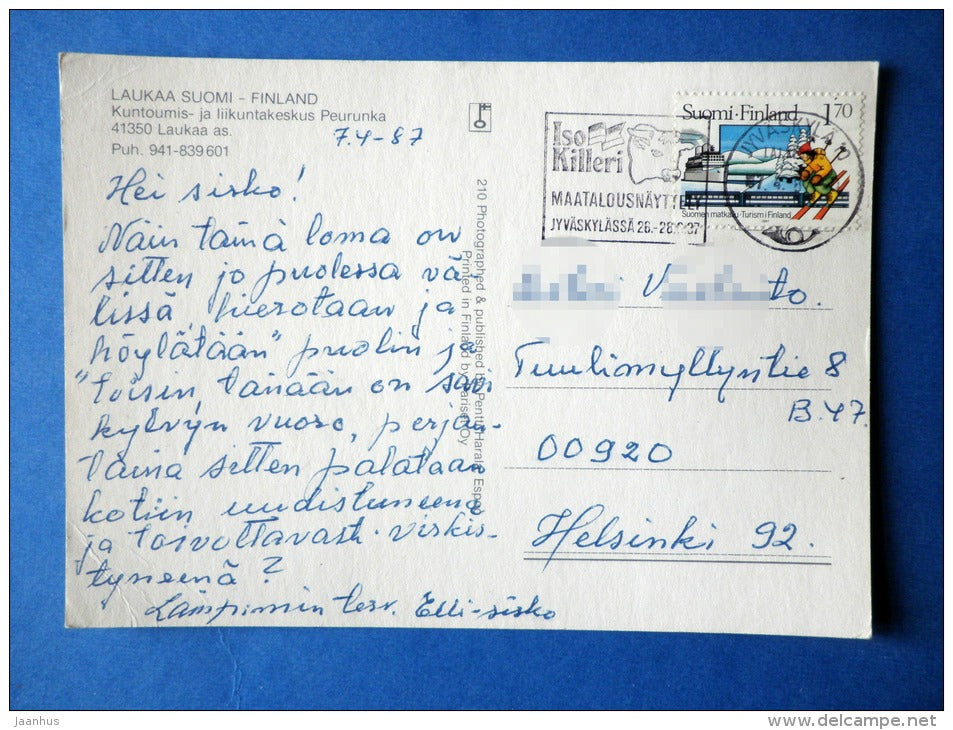 LAUKAA SUOMI - FINLAND
Kuntoumis- ja liikuntakeskus Peurunka
41350 Laukaa as.
Puh. 941-839601
7.4-87
Hei sisko!
Näin tämä loma on
sitten jo puolessa vä-
lissä, hierotaan ja
höylätään" puolin ja
"toisin, tänään on savi
kylvyn vuoro, perjan-
taina sitten palataan
kotiin uudistuneena
ja toivottavasti virkis-
tyneenä?
Lämpimin terv. Elli-sisko
210 Photographed & published by Pentti Harala, Espoo
Printed in Finland by Oy
Iso
Killeri
MAATALOUSNÄYTTELY
JYVÄSKYLÄSSÄ
Suomi·Finland 1,70
Suomen matkailu·Turism i Finland
JYVÄSKYLÄ
Tuulimyllyntie 8
B.47.
00920
Helsinki 92.
jaanhus
www.delcampe.net